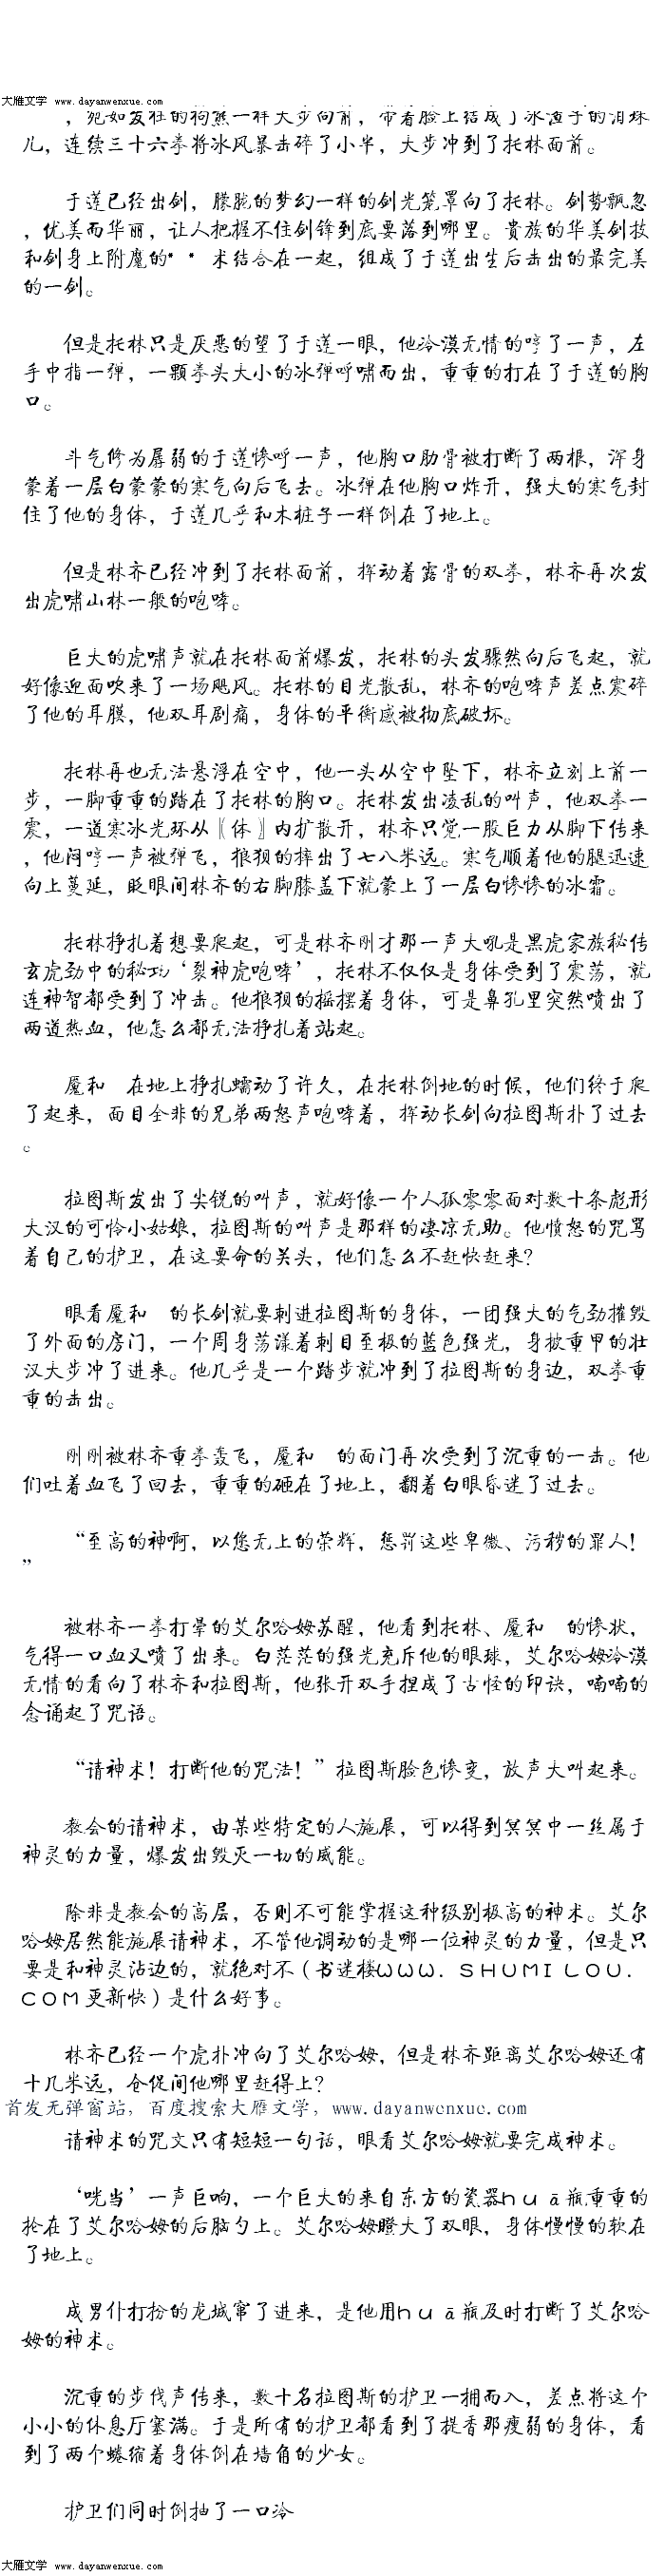 大雁文学 www.dayanwenxue.com
，宛如发狂的狗熊一样大步向前，带着脸上结成了冰渣子的泪珠
儿，连续三十六拳将冰风暴击碎了小半，大步冲到了托林面前。
于莲已经出剑，朦胧的梦幻一样的剑光笼罩向了托林。剑势飘忽
，优美而华丽，让人把握不住剑锋到底要落到哪里。贵族的华美剑技
和剑身上附魔的* * 术结合在一起，组成了于莲出生后击出的最完美
的一剑。
但是托林只是厌恶的望了于莲一眼，他冷漠无情的哼了一声，左
手中指一弹，一颗拳头大小的冰弹呼啸而出，重重的打在了于莲的胸
口。
斗气修为孱弱的于莲惨呼一声，他胸口肋骨被打断了两根，浑身
蒙着一层白蒙蒙的寒气向后飞去。冰弹在他胸口炸开，强大的寒气封
住了他的身体，于莲几乎和木桩子一样倒在了地上。
但是林齐已经冲到了托林面前，挥动着露骨的双拳，林齐再次发
出虎啸山林一般的咆哮。
巨大的虎啸声就在托林面前爆发，托林的头发骤然向后飞起，就
好像迎面吹来了一场飓风。托林的目光散乱，林齐的咆哮声差点震碎
了他的耳膜，他双耳剧痛，身体的平衡感被彻底破坏。
托林再也无法悬浮在空中，他一头从空中坠下，林齐立刻上前一
步，一脚重重的踏在了托林的胸口。托林发出凌乱的叫声，他双拳一
震，一道寒冰光环从〖体〗内扩散开，林齐只觉一股巨力从脚下传来
，他闷哼一声被弹飞，狼狈的摔出了七八米远。寒气顺着他的腿迅速
向上蔓延，眨眼间林齐的右脚膝盖下就蒙上了一层白惨惨的冰霜。
托林挣扎着想要爬起，可是林齐刚才那一声大吼是黑虎家族秘传
玄虎劲中的秘功‘裂神虎咆哮’，托林不仅仅是身体受到了震荡，就
连神智都受到了冲击。他狼狈的摇摆着身体，可是鼻孔里突然喷出了
两道热血，他怎么都无法挣扎着站起。
魇和　在地上挣扎蠕动了许久，在托林倒地的时候，他们终于爬
了起来，面目全非的兄弟两怒声咆哮着，挥动长剑向拉图斯扑了过去
。
拉图斯发出了尖锐的叫声，就好像一个人孤零零面对数十条彪形
大汉的可怜小姑娘，拉图斯的叫声是那样的凄凉无助。他愤怒的咒骂
着自己的护卫，在这要命的关头，他们怎么不赶快赶来？
眼看魇和　的长剑就要刺进拉图斯的身体，一团强大的气劲摧毁
了外面的房门，一个周身荡漾着刺目至极的蓝色强光，身披重甲的壮
汉大步冲了进来。他几乎是一个踏步就冲到了拉图斯的身边，双拳重
重的击出。
刚刚被林齐重拳轰飞，魇和　的面门再次受到了沉重的一击。他
们吐着血飞了回去，重重的砸在了地上，翻着白眼昏迷了过去。
“至高的神啊，以您无上的荣辉，惩罚这些卑微、污秽的罪人！
”
被林齐一拳打晕的艾尔哈姆苏醒，他看到托林、魇和　的惨状，
气得一口血又喷了出来。白茫茫的强光充斥他的眼球，艾尔哈姆冷漠
无情的看向了林齐和拉图斯，他张开双手捏成了古怪的印诀，喃喃的
念诵起了咒语。
“请神术！打断他的咒法！”拉图斯脸色惨变，放声大叫起来。
教会的请神术，由某些特定的人施展，可以得到冥冥中一丝属于
神灵的力量，爆发出毁灭一切的威能。
除非是教会的高层，否则不可能掌握这种级别极高的神术。艾尔
哈姆居然能施展请神术，不管他调动的是哪一位神灵的力量，但是只
要是和神灵沾边的，就绝对不（书迷楼ＷＷＷ．ＳＨＵＭＩＬＯＵ．
ＣＯＭ更新快）是什么好事。
林齐已经一个虎扑冲向了艾尔哈姆，但是林齐距离艾尔哈姆还有
十几米远，仓促间他哪里赶得上？
首发无弹窗站，百度搜索大雁文学，www.dayanwenxue.com
请神术的咒文只有短短一句话，眼看艾尔哈姆就要完成神术。
‘咣当’一声巨响，一个巨大的来自东方的瓷器ｈｕā瓶重重的
抡在了艾尔哈姆的后脑勺上。艾尔哈姆瞪大了双眼，身体慢慢的软在
了地上。
成男仆打扮的龙城窜了进来，是他用ｈｕā瓶及时打断了艾尔哈
姆的神术。
沉重的步伐声传来，数十名拉图斯的护卫一拥而入，差点将这个
小小的休息厅塞满。于是所有的护卫都看到了提香那瘦弱的身体，看
到了两个蜷缩着身体倒在墙角的少女。
护卫们同时倒抽了一口冷
大雁文学 www.dayanwenxue.com